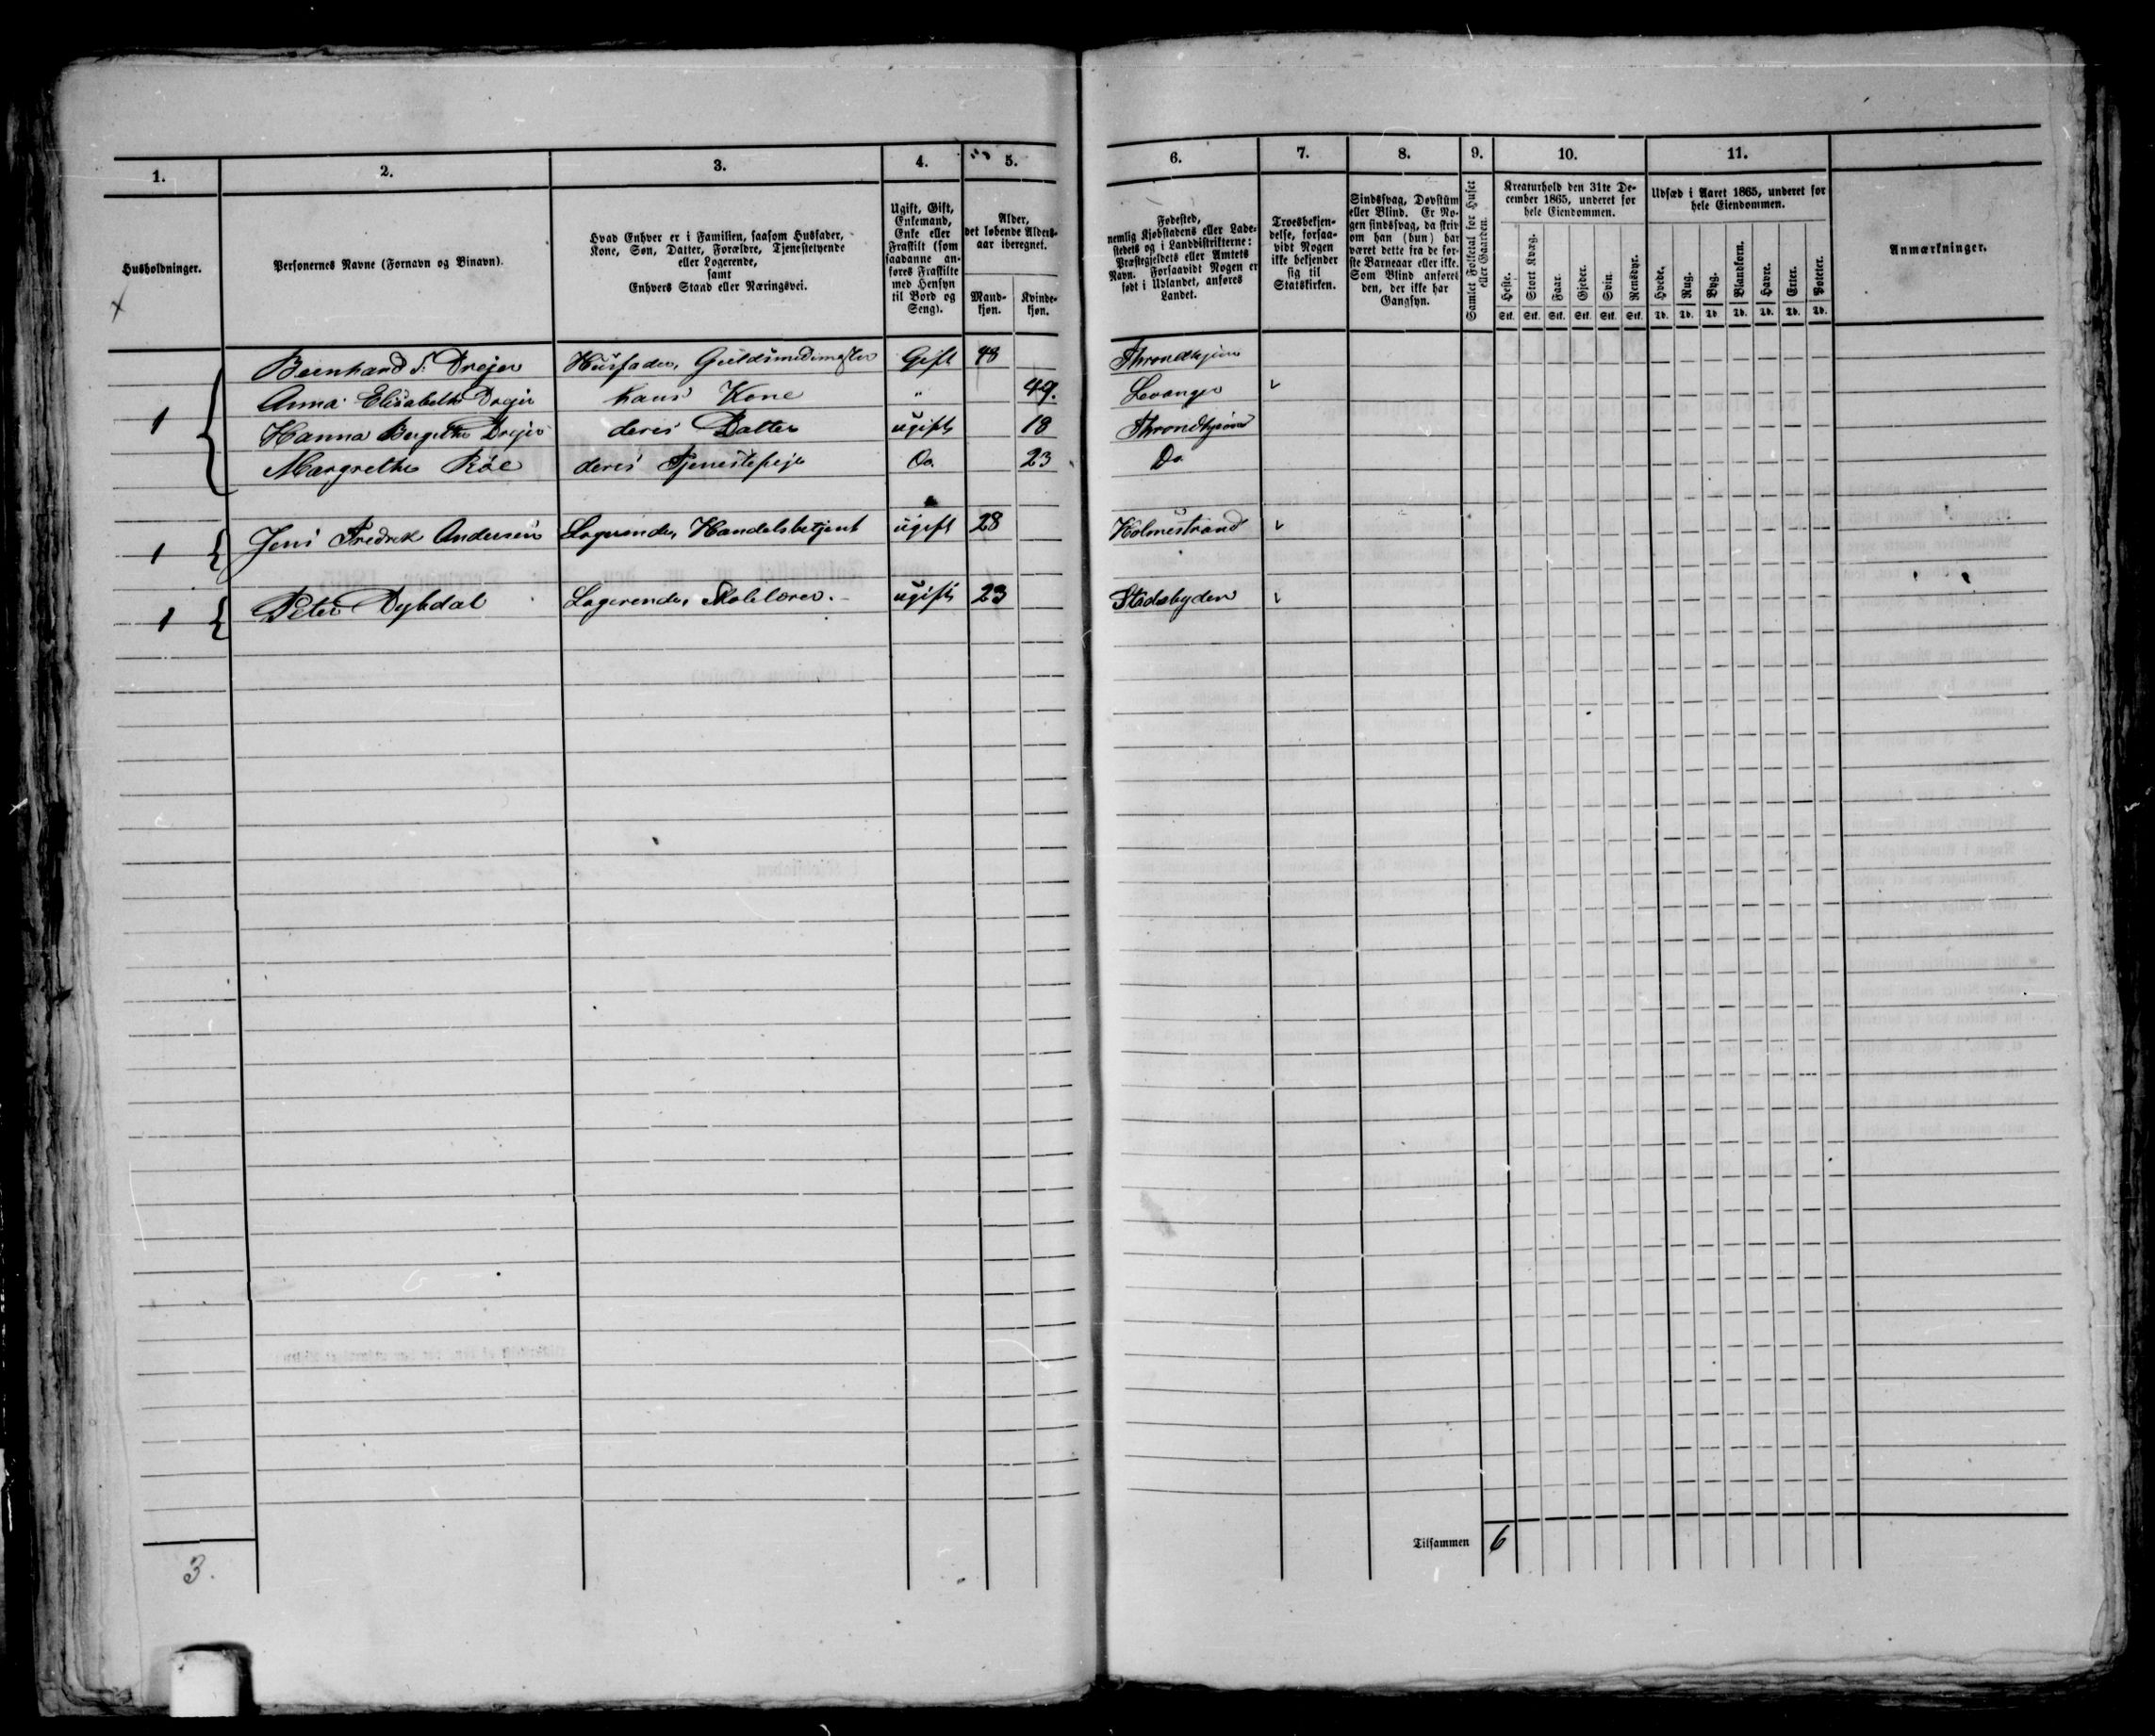 1. 2. 3. 4. 5. 6. 7. 8. 9. 10. 11.
Husholdninger.
Personernes Navne (Fornavn og Binavn).
Hvad Enhver er i Familien, saasom Husfader,
Kone, Søn, Datter, Forældre, Tjenestetyende
eller Logerende,
samt
Enhvers Stand eller Næringsvei.
Ugift, Gift,
Enkemand,
Enke eller
Fraskilt (som
saadanne an-
føres Fraskilte
med Hensyn
til Bord og
Seng).
Alder,
det løbende Alders-
aar iberegnet.
Mand-
kjøn.
Kvinde-
kjøn.
Fødested,
nemlig Kjøbstadens eller Lade-
stedets og i Landdistrikterne:
Præstegjeldets eller Amtets
Navn. Forsaavidt Nogen er
født i Udlandet, anføres
Landet.
Troesbekjen-
delse, forsaa-
vidt Nogen
ikke bekjender
sig til
Statskirken.
Sindssvag, Døvstum
eller Blind. Er No-
gen sindssvag, da skriv
om han (hun) har
været dette fra de før-
ste Barneaar eller ikke.
Som Blind anføres
den, der ikke har
Gangsyn.
Samlet Folketal for Huset
eller Gaarden.
Kreaturhold den 31te De-
cember 1865, underet for
hele Eiendommen.
Heste. Stort Kvæg. Faar. Gjeder. Svin. Rensdyr.
Stk. Stk. Stk. Stk. Stk. Stk.
Udsæd i Aaret 1865, underet for
hele Eiendommen.
Hvede. Rug. Byg. Blandkorn. Havre. Erter. Poteter.
Td. Td. Td. Td. Td. Td. Td.
Anmærkninger.
Bernhard F. Drejer Husfader, Guldsmedmester Gift 48 Throndhjem
Anna Elisabeth Drejer hans Kone " 49. Levanger
1 Hanna Bergithe Drejer deres Datter ugift 18 Throndhjem
Margrethe Röe deres Tjenestepige Do. 23 Do
1 Jens Fredrek Andersen Logerende, Handelsbetjent ugift 28 Holmestrand
1 Peter Dybdal Logerende, Skolelærer. ugift 23 Stadsbygden
Tilsammen 6
3.